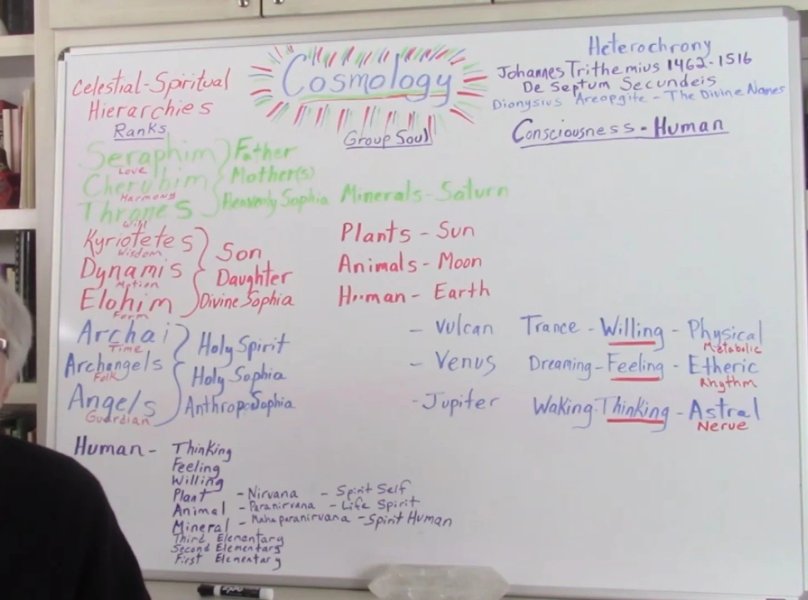 Cosmology
Celestial-Spiritual
Hierarchies
Ranks
Heterochrony
Johannes Trithemius 1462-1516
De Septum Secundeis
Dionysius Areopgite - The Divine Names
Group Soul
Consciousness - Human
Seraphim Father
Love
Cherubim Mother(s)
Harmony
Thrones Heavenly Sophia Minerals - Saturn
Will
Kyriotetes Son Plants - Sun
Wisdom
Dynamis Daughter Animals - Moon
Motion
Elohim Divine Sophia Human - Earth
Form
Archai Holy Spirit - Vulcan Trance - Willing - Physical
Time Metabolic
Archangels Holy Sophia - Venus Dreaming - Feeling - Etheric
Folk Rhythm
Angels AnthropoSophia - Jupiter Waking - Thinking - Astral
Guardian Nerve
Human - Thinking
Feeling
Willing
Plant - Nirvana - Spirit Self
Animal - Paranirvana - Life Spirit
Mineral - Mahaparanirvana - Spirit Human
Third Elementary
Second Elementary
First Elementary